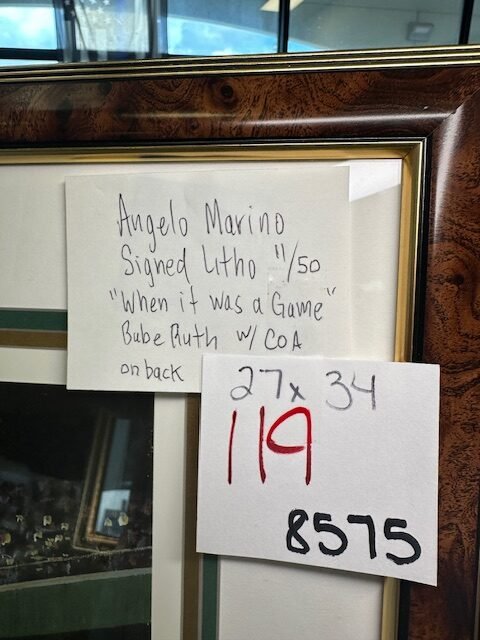 Angelo Marino
Signed Litho 11/50
"When it was a Game"
Babe Ruth w/ COA
on back
27x34
119
8575